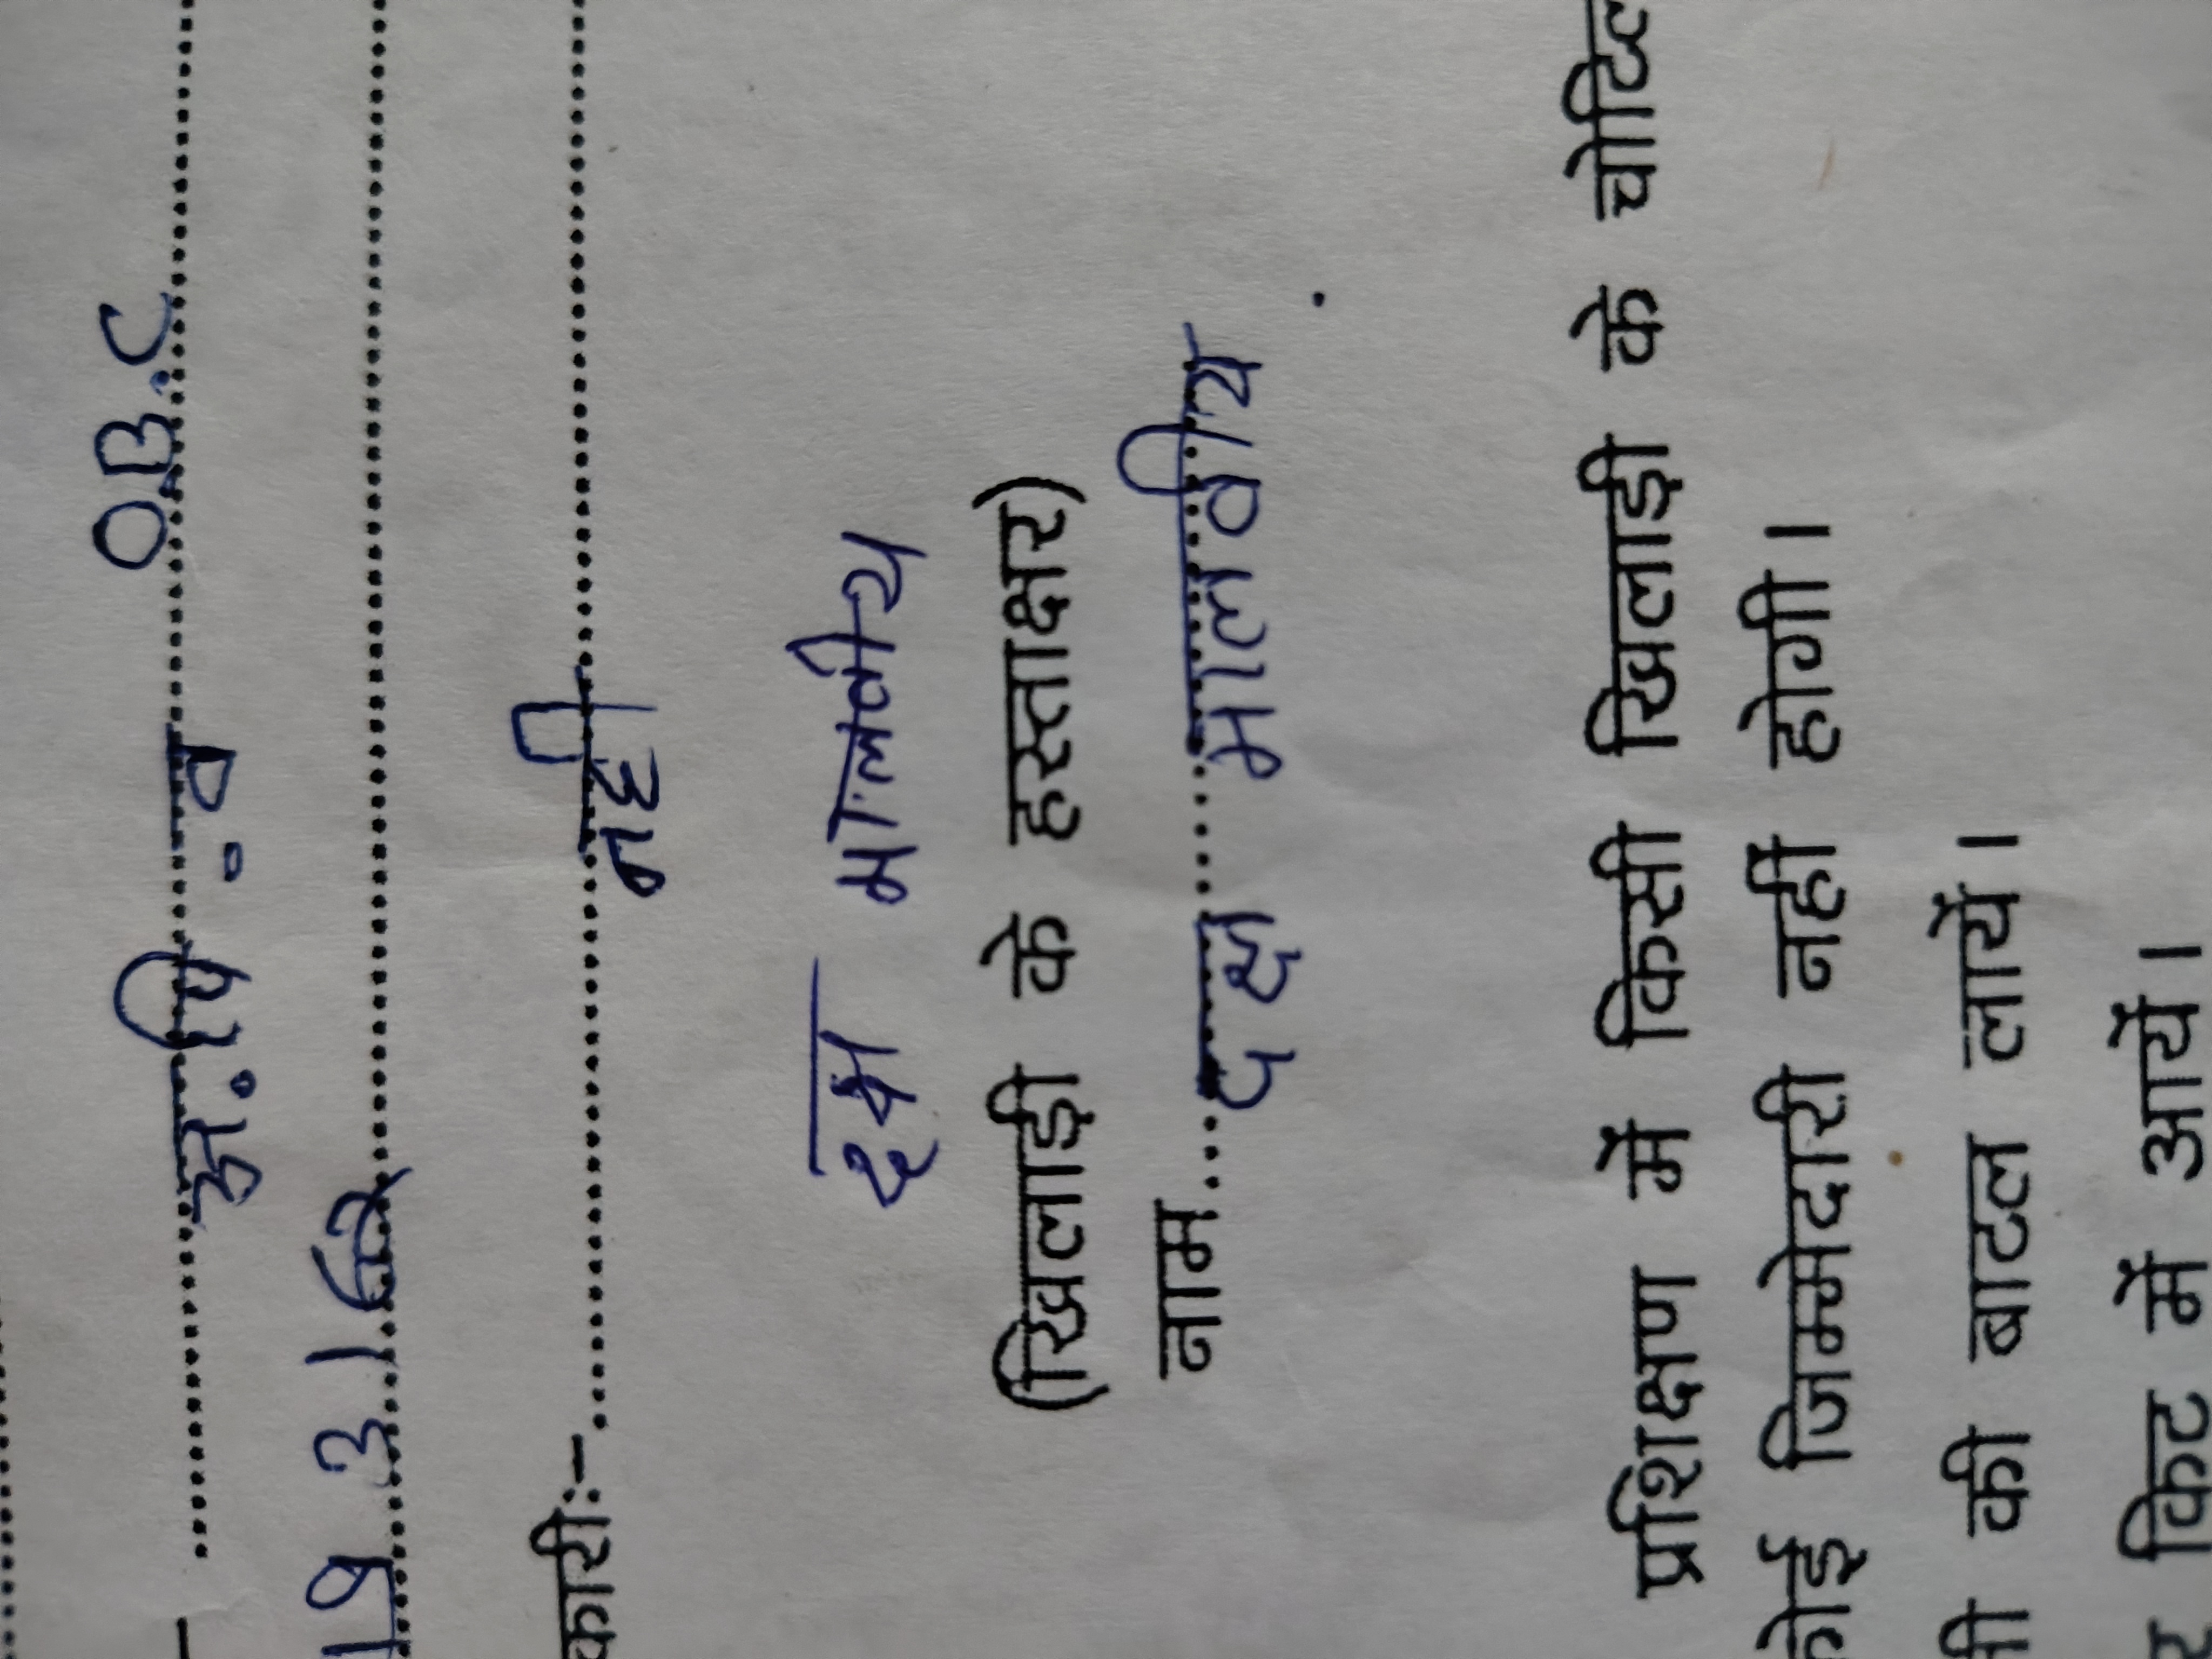 अ. पि. व OBC
नही
कारीः-
दक्ष मालवीय
(खिलाड़ी के हस्ताक्षार)
नाम... दक्ष मालवीय
प्रशिक्षण में किसी खिलाड़ी के चोटिल
कोई जिम्मेदारी नहीं होगी।
की बाटल लायें।
किट में आयें।